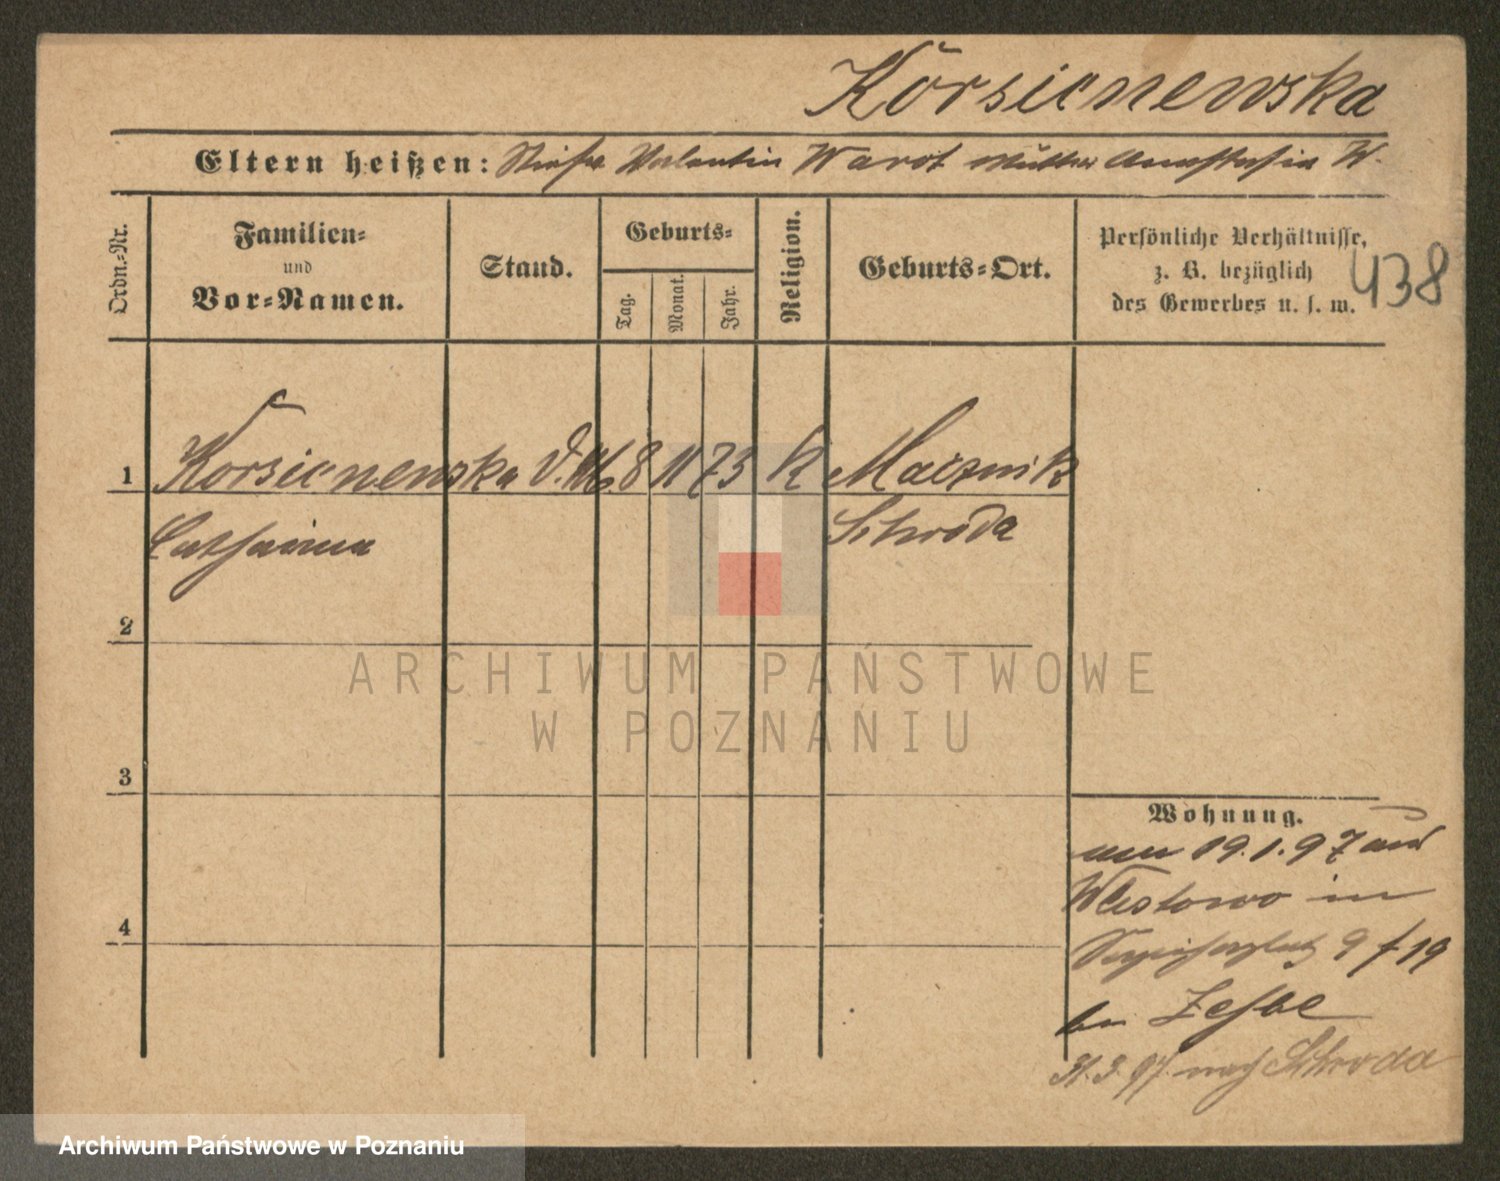 Korsienewska
Eltern heißen: Valentin Warot Mutter Anastasia W.
Ordn.-Nr.
Familien- und Vor-Namen.
Stand.
Geburts-
Tag.
Monat.
Jahr.
Religion.
Geburts-Ort.
Persönliche Verhältnisse,
z. B. bezüglich
des Gewerbes u. s. w.
438
1 Korsienewska 8 11 73 K
Catharina Schroda
2
3
4
Wohnung.
19.1.97 aus
in
9 / 19
bei
31.3.97 nach Schroda
ARCHIWUM PAŃSTWOWE
W POZNANIU
Archiwum Państwowe w Poznaniu